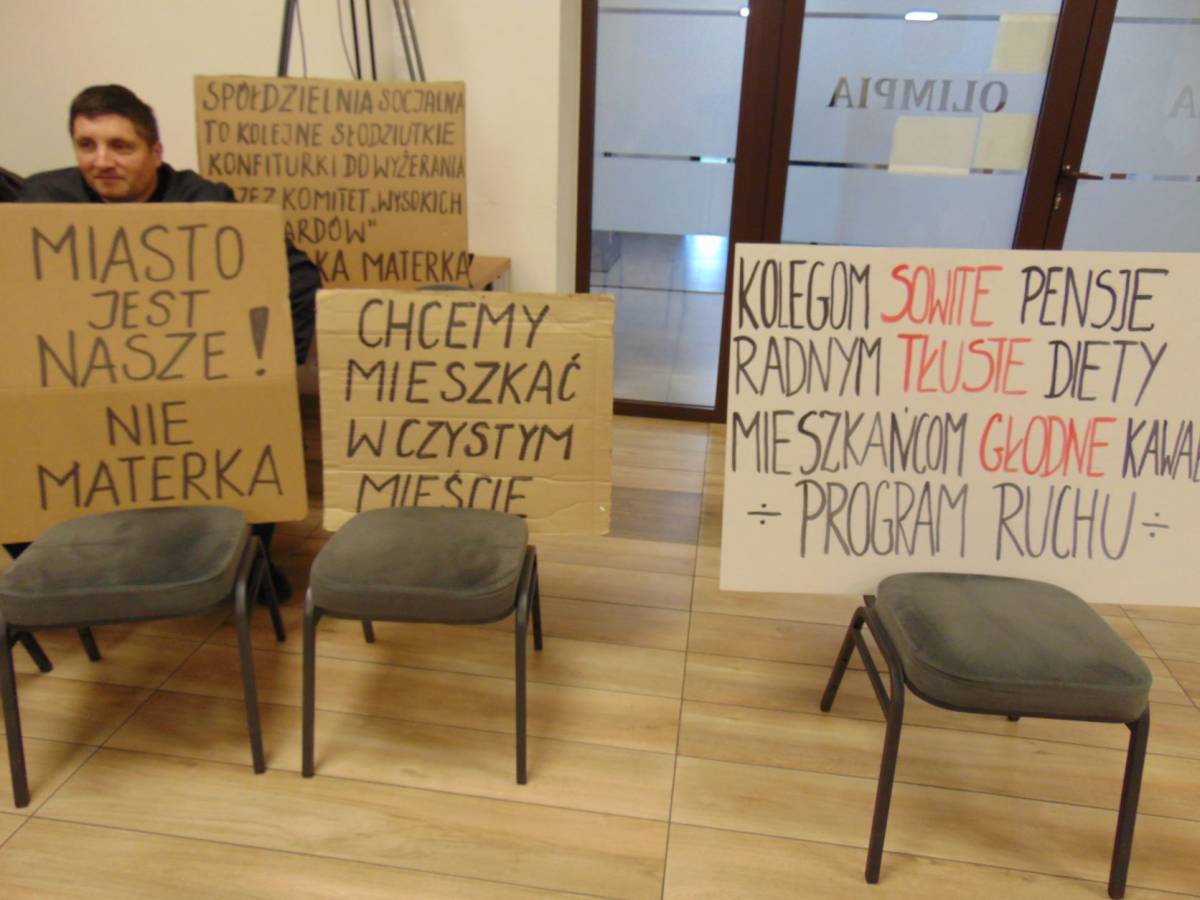 SPÓŁDZIELNIA SOCJALNA
TO KOLEJNE SŁODZIUTKIE
KONFITURKI DO WYŻERANIA
KOMITET „WYSOKICH
MATERKA
MIASTO
JEST
NASZE!
NIE
MATERKA
CHCEMY
MIESZKAĆ
W CZYSTYM
MIEŚCIE
OLIMPIA
KOLEGOM SOWITE PENSJE
RADNYM TŁUSTE DIETY
MIESZKAŃCOM GŁODNE
÷ PROGRAM RUCHU ÷